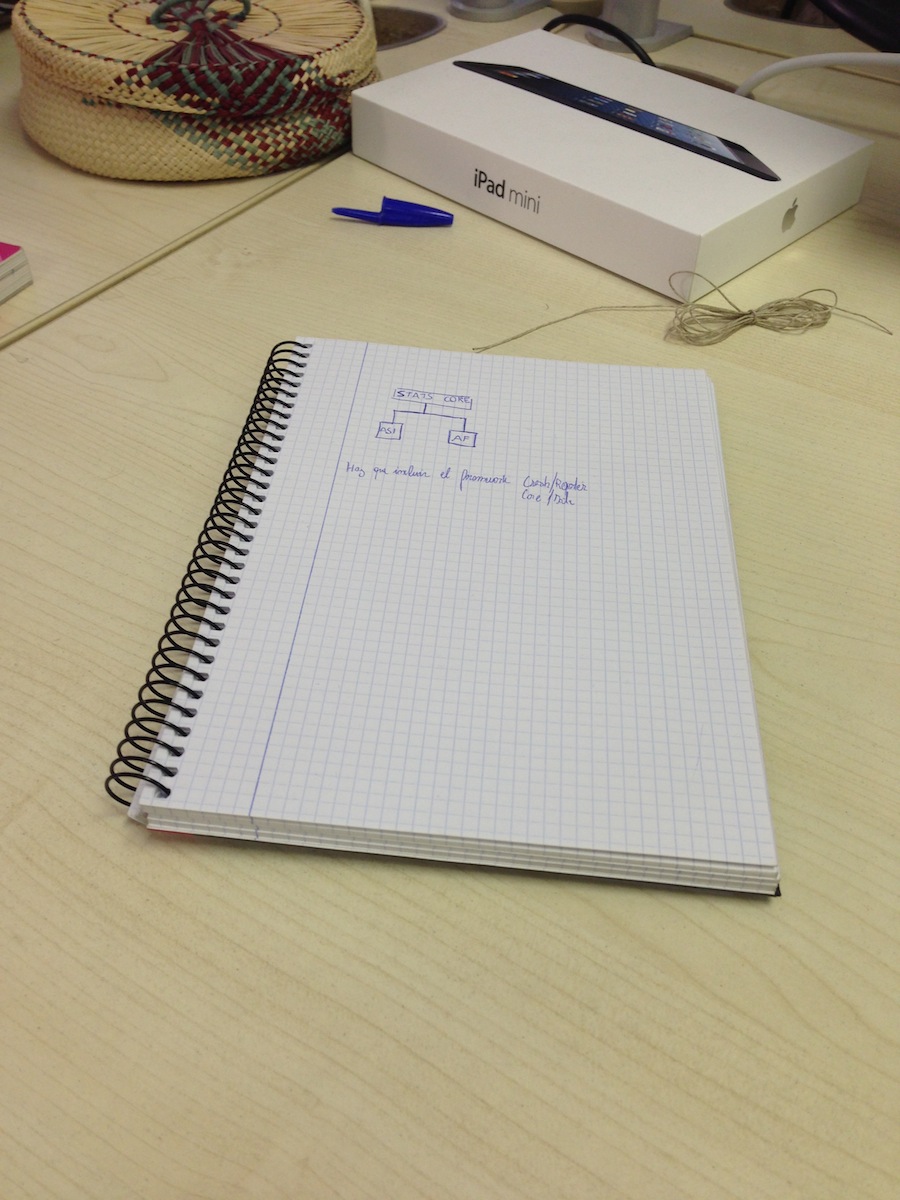 iPad mini
STATS CORE
ASI
AF
Hay que incluir el framework Crash/Reporter
Core/Data